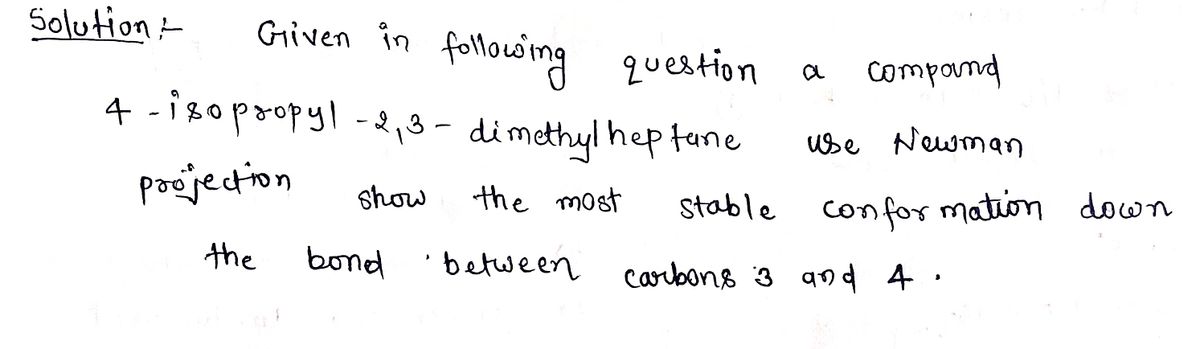 Solution :- Given in following question a compound
4 - isopropyl - 2,3 - dimethylheptane use Newman
projection show the most stable conformation down
the bond between carbons 3 and 4 .